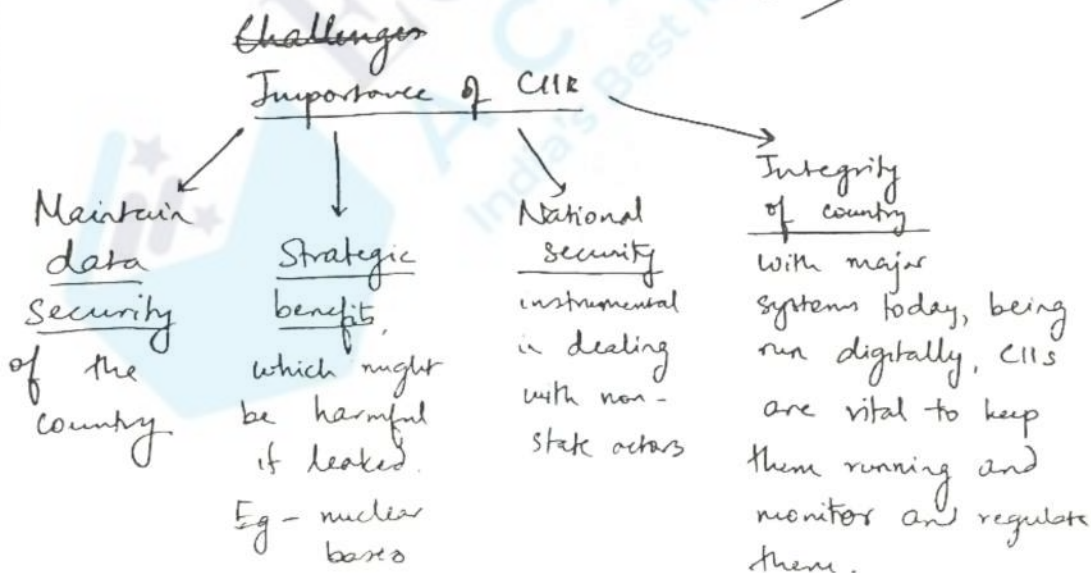 Challenges
Importance of CIIs
Maintain
data
security
of the
country
Strategic
benefits,
which might
be harmful
if leaked.
Eg - nuclear
bases
National
security
instrumental
in dealing
with non-
state actors
Integrity
of country
with major
systems today, being
run digitally, CIIs
are vital to keep
them running and
monitor and regulate
them.
India's Best